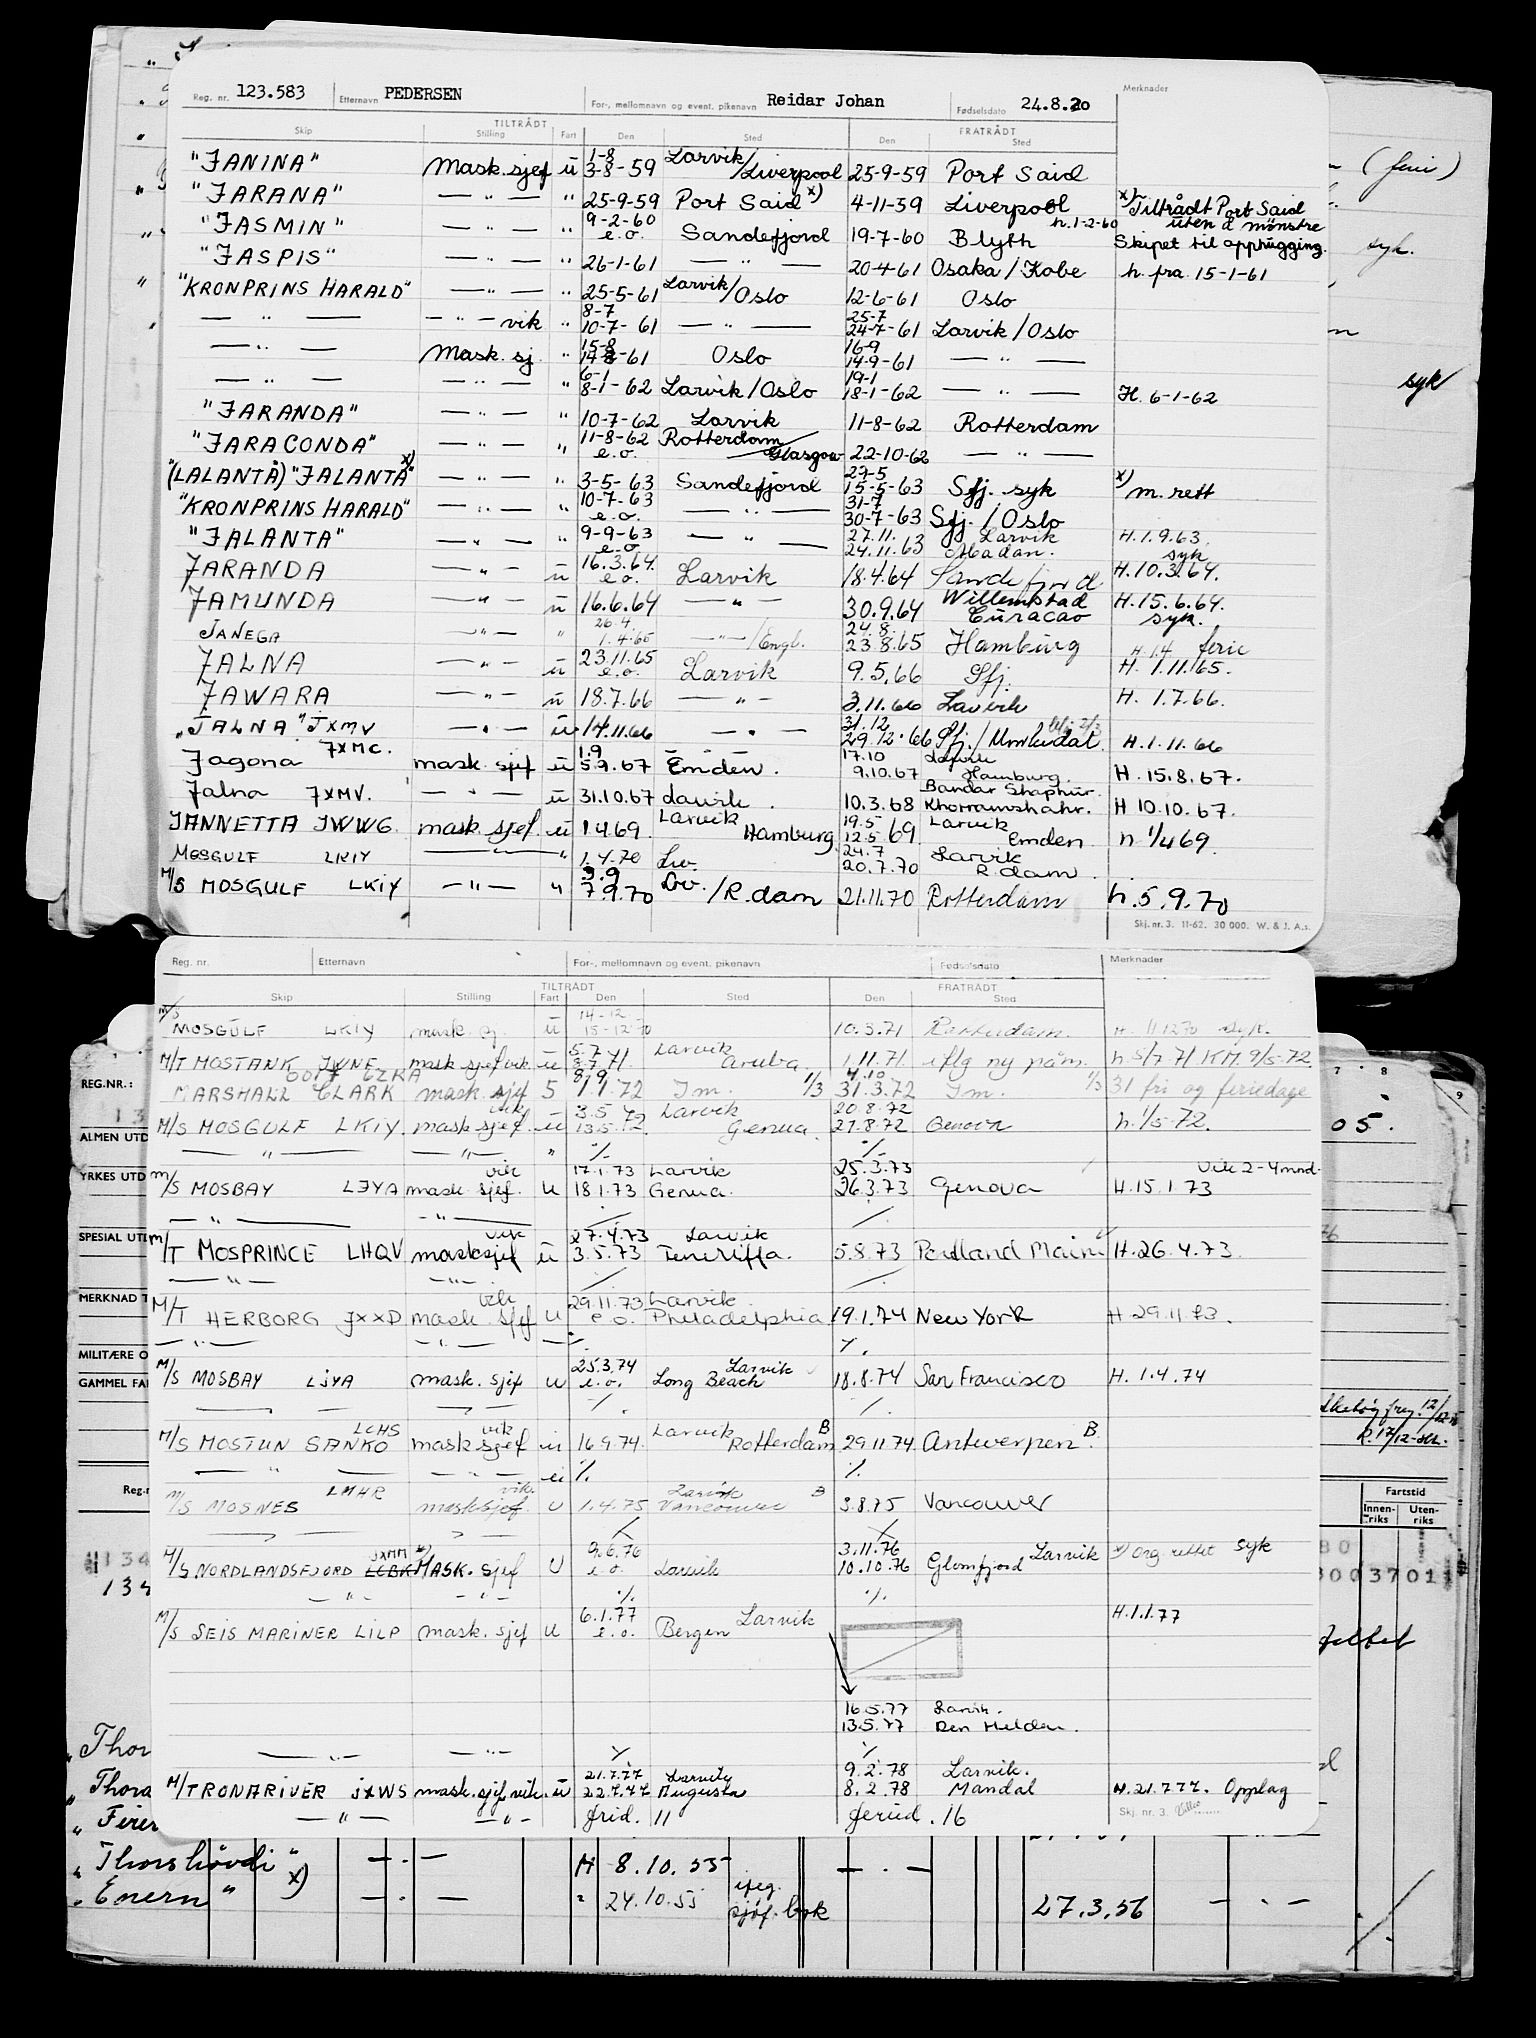 Reg. nr. 123.583 Etternavn PEDERSEN For-, mellomnavn og event. pikenavn Reidar Johan Fødselsdato 24.8.20 Merknader
TILTRÅDT FRATRÅDT
Skip Stilling Fart Den Sted Den Sted
"JANINA" Mask. sjef u 1-8 3-8-59 Larvik/Liverpool 25-9-59 Port Said
"JARANA" — " — " 25-9-59 Port Said x) 4-11-59 Liverpool x) Tiltrådt Port Said uten å mønstre
"JASMIN" — " — " 9-2-60 e.o. Sandefjord 19-7-60 Blyth h. 1-2-60 Skipet til opphugging.
"JASPIS" — " — " 26-1-61 — " — 20-4-61 Osaka/Kobe h. fra 15-1-61
"KRONPRINS HARALD" — " — " 25-5-61 Larvik/Oslo 12-6-61 Oslo
— " — — " — vik " 8-7 10-7-61 — " — 25-7 24-7-61 Larvik/Oslo
— " — Mask. sj. " 15-8 14-8-61 Oslo 16-9 14-9-61 — " —
— " — — " — " 6-1 8-1-62 Larvik/Oslo 19-1 18-1-62 — " — H. 6-1-62
"JARANDA" — " — " 10-7-62 Larvik 11-8-62 Rotterdam
"JARACONDA" — " — " 11-8-62 e.o. Rotterdam/Glasgow 22-10-62 — " —
(LALANTÅ) "JALANTA" x) — " — " 3-5-63 Sandefjord 29-5 15-5-63 Sfj. syk x) m. rett
"KRONPRINS HARALD" — " — " 10-7-63 e.o. — " — 31-7 30-7-63 Sfj./Oslo
"JALANTA" — " — " 9-9-63 e.o. — " — 27.11. 24.11.63 Larvik Abadan. H.1.9.63. syk
JARANDA — " — u 16.3.64. e.o. Larvik 18.4.64 Sandefjord H.10.3.64.
JAMUNDA — " — u 16.6.64 — " — 30.9.64 Willemstad Curacao H.15.6.64. syk.
JANEGA — " — " 26.4. 1.4.65 — " — /Engl. 24.8. 23.8.65 Hamburg H.1.4 ferie
JALNA — " — u 23.11.65 e.o. Larvik 9.5.66 Sfj. H. 1.11.65.
JAWARA u 18.7.66 — " — 3.11.66 Larvik H. 1.7.66.
"JALNA" JXMV — " — u 14.11.66 — " — 31.12 29.12.66 Sfj./ H.1.11.66
Jagona JXMC. mask. sjef u 1.9 5.9.67 Emden. 17.10 9.10.67 Larvik Hamburg. H.15.8.67.
Jalna JXMV. — " — u 31.10.67 Larvik. 10.3.68 Bandar Shaphur. Khorramshahr. H 10.10.67.
JANNETTA JWWG. mask. sjef u 1.4.69. Larvik Hamburg. 19.5 12.5.69 Larvik Emden. h 1/4 69.
MOSGULF LKIY — " — " 1.4.70 Lw. 24.7 20.7.70 Larvik R.dam.
M/S MOSGULF LKIY — " — " 3.9 7.9.70 Lw./R.dam 21.11.70 Rotterdam h.5.9.70
Skj. nr. 3. 11-62. 30 000. W. & J. A.s.
Reg. nr. Etternavn For-, mellomnavn og event. pikenavn Fødselsdato Merknader
TILTRÅDT FRATRÅDT
Skip Stilling Fart Den Sted Den Sted
M/S MOSGULF LKIY mask. sj. u 14-12- 15-12-70 10.3.71 Rotterdam. H. syk.
M/T MOSTANK JWNE mask. sjef vik. u 5.7 71. Larvik Aruba 1.11.71. iflg ny påm. h 5/7 71 KM. 9/5-72
MARSHALL CLARK mask. sjef 5 1.1.72 Im. 1/3 31.3.72 Im. 1/3 31 fri og feriedage
M/S MOSGULF LKIY. mask. sjef. vik u 3.5 13.5.72. Larvik Genua. 20.8.72 21.8.72 Genova h. 1/5-72.
— " — — " — " %. %.
M/S MOSBAY LJYA mask. sjef. vik u 17.1.73 18.1.73 Larvik Genua. 25.3.73 26.3.73 Genova H.15.1.73 Vik 2-4 mnd.
— " — — " —
M/T MOSPRINCE LHQV masksjef vik u 27.4.73 3.5.73 Larvik Teneriffa. 5.8.73 Portland Main H.26.4.73.
— " — — " —
M/T HERBORG JXXD mask. sjef vik u 29.11.73 e.o. Larvik Philadelphia 19.1.74 New York H 29.11.73.
— " — — " —
M/S MOSBAY LJYA mask. sjef u 25.3.74 e.o. Larvik Long Beach 18.8.74 San Francisco H. 1.4.74
M/S MOSTUN SANKO LCHS mask sjef vik u 16.9.74. Larvik Rotterdam B 29.11.74 Antwerpen B.
— " — — " — u %. %.
M/S MOSNES LMHR masksjef. vik. U 1.4.75 Larvik Vancouver B 3.8.75 Vancouver
M/S NORDLANDSFJORD JXMM LCBK x) MASK. sjef U 9.6.76 e.o. Larvik 3.11.76 10.10.76 Glomfjord Larvik x) Org. rettet syk
— " — — " — %. %.
M/S SEIS MARINER LILP mask. sjef U 6.1.77 e.o. Bergen Larvik H.1.1.77
16.5.77 Larvik.
13.5.77 Den Helder.
— " — — " — % %
M/T RONARIVER JXWS mask. sjef vik. u 21.7.77 22.7.77 Larvik Augusta 9.2.78 8.2.78 Larvik. Mandal H.21.7.77. Opplag
— " — — " — frid. 11 feried. 16
Skj. nr. 3.
(ferie)
syk.
syk
REG.NR.:
ALMEN UTD
YRKES UTD
SPESIAL UTD
MERKNAD T
MILITÆRE O
GAMMEL FA
Reg.n
134
134
05.
Fartstid
Innen-riks Uten-riks
30037011
"Thor
"Thora
"Thorshövdi" — . — M 8.10.55 — . —
"Enern" x) — . — " 24.10.55 ifeg. sjöf. bok 27.3.56 — . —